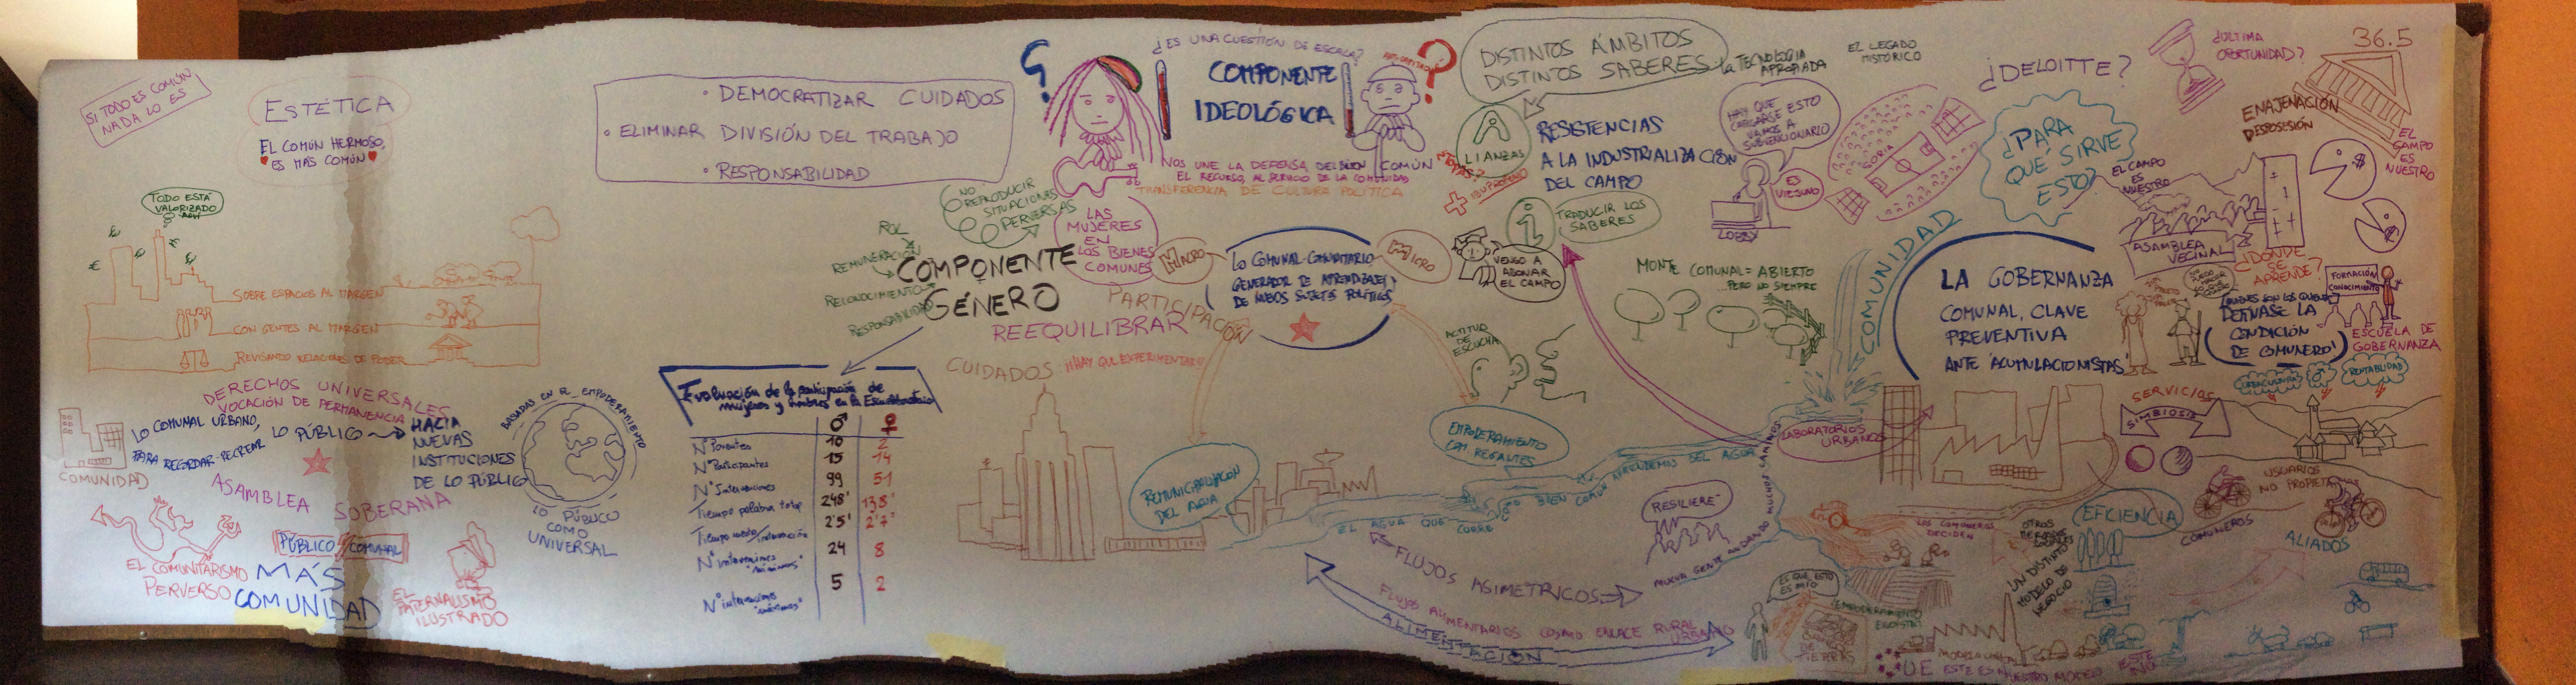 SI TODO ES COMÚN
NADA LO ES
ESTÉTICA
EL COMÚN HERMOSO,
ES MÁS COMÚN
TODO ESTÁ
VALORIZADO
AQUÍ
€
€
€
€
SOBRE ESPACIOS AL MARGEN
CON GENTES AL MARGEN
REVISANDO RELACIONES DE PODER
DERECHOS UNIVERSALES
VOCACIÓN DE PERMANENCIA
LO COMUNAL URBANO,
PARA RECORDAR-RECREAR LO PÚBLICO
HACIA
NUEVAS
INSTITUCIONES
DE LO PÚBLICO
COMUNIDAD
BASADAS EN EL EMPODERAMIENTO
LO PÚBLICO
COMO
UNIVERSAL
ASAMBLEA SOBERANA
PÚBLICO COMUNAL
EL COMUNITARISMO
PERVERSO
MÁS
COMUNIDAD
EL
PATERNALISMO
ILUSTRADO
• DEMOCRATIZAR CUIDADOS
• ELIMINAR DIVISIÓN DEL TRABAJO
• RESPONSABILIDAD
NO
REPRODUCIR
SITUACIONES
PERVERSAS
ROL
REMUNERACIÓN
RECONOCIMIENTO
RESPONSABILIDAD
COMPONENTE
GÉNERO
LAS
MUJERES
EN
LOS BIENES
COMUNES
PARTICIPACIÓN
REEQUILIBRAR
CUIDADOS ¡¡HAY QUE EXPERIMENTAR!!
Evaluación de la participación de
mujeres y hombres en la
♂ ♀
Nº Ponentes 10 2
Nº Participantes 15 14
Nº Intervenciones 99 51
Tiempo palabra total 248' 138'
Tiempo medio/intervención 2'5' 2'7'
Nº intervenciones "mínimas" 24 8
Nº intervenciones "máximas" 5 2
¿ES UNA CUESTIÓN DE ESCALA?
COMPONENTE
IDEOLÓGICA
NOS UNE LA DEFENSA DEL BIEN COMÚN
EL RECURSO, AL SERVICIO DE LA COMUNIDAD
TRANSFERENCIA DE CULTURA POLÍTICA
MACRO
LO COMUNAL-COMUNITARIO
GENERADOR DE APRENDIZAJES Y
DE NUEVOS SUJETOS POLÍTICOS
MICRO
DISTINTOS ÁMBITOS
DISTINTOS SABERES
la TECNOLOGÍA
APROPIADA
EL LEGADO
HISTÓRICO
ALIANZAS
RESISTENCIAS
A LA INDUSTRIALIZACIÓN
DEL CAMPO
IBUPROFENO
i
TRADUCIR LOS
SABERES
VENGO A
ABONAR
EL CAMPO
ACTITUD
DE ESCUCHA
HAY QUE
CARGARSE ESTO
VAMOS A
SUBVENCIONARLO
ES
VIESUNO
LOBBY
SORIA
MONTE COMUNAL = ABIERTO
...PERO NO SIEMPRE
COMUNIDAD
REMUNICIPALIZACIÓN
DEL AGUA
EMPODERAMIENTO
CON REGANTES
EL AGUA QUE CORRE
BIEN COMÚN
APRENDEMOS DEL AGUA
FLUJOS ASIMETRICOS
FLUJOS ALIMENTARIOS COMO ENLACE RURAL URBANO
ALIMENTACIÓN
RESILIERE-
MUCHA GENTE ANDANDO MUCHOS CAMINOS
LABORATORIOS
URBANOS
¿DELOITTE?
¿PARA
QUÉ SIRVE
ESTO?
¿ÚLTIMA
OPORTUNIDAD?
36.5
ENAJENACIÓN
DESPOSESIÓN
EL CAMPO
ES
NUESTRO
EL
CAMPO
ES
NUESTRO
$
$
ASAMBLEA
VECINAL
LA GOBERNANZA
COMUNAL, CLAVE
PREVENTIVA
ANTE 'ACUMULACIONISTAS'
¿DÓNDE
SE
APRENDE?
FORMACIÓN
CONOCIMIENTO
ESCUELA DE
GOBERNANZA
LA
CONDICIÓN
DE COMUNERO
RENTABILIDAD
SERVICIOS
SIMBIOSIS
USUARIOS
NO PROPIETA
COMUNEROS
ALIADOS
EFICIENCIA
LOS COMUNEROS
DECIDEN
UN DISTINTO
MODELO DE
NEGOCIO
ES QUE ESTO
ES MÍO
¿EMPODERAMIENTO
EGOISTA?
DE
TIERRAS
UE ESTE ES NUESTRO MODELO
ESTE
NO